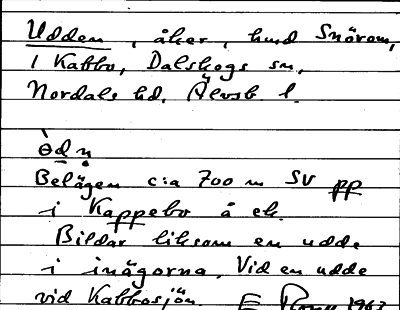 Udden, åker, hmd Snöron,
1 Kabbo, Dalskogs sn,
Nordals hd, Älvsb l.
Belägen c:a 700 m SV pp
i Kappebo å ek.
Bildar liksom en udde
i inägorna. Vid en udde
vid Kabbosjön. E 1963